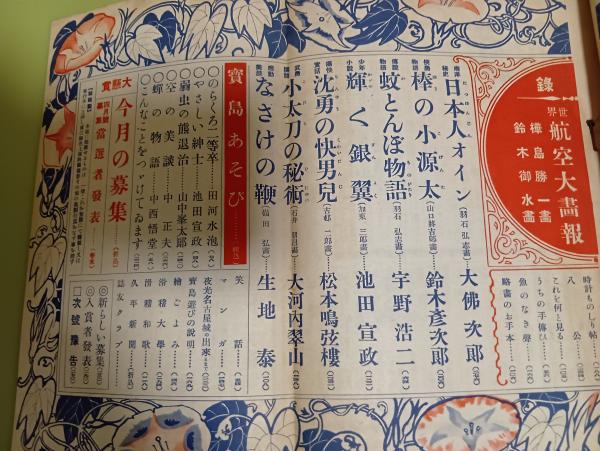 錄
世界
航空大畫報
樺島勝一畫
鈴木御水畫
時計ものしり帖
八公
これを何と見る
うちの手傳ひ
魚のなき聲
略畫のお手本
日本人オイン
(羽石弘志畫)
大佛次郎
棒の小源太
(山口將吉郎畫)
鈴木彥次郎
蚊とんぼ物語
(羽石弘志畫)
宇野浩二
少年小說
輝く銀翼
(加東三郎畫)
池田宣政
痛快實話
沈勇の快男兒
(古都二郎畫)
松本鳴弦樓
小太刀の秘術
大河內翠山
なさけの鞭
生地泰
寶島あそび
(折込)
○のらくろ二等卒
田河水泡
○やさしい紳士
池田宣政
○弱虫の熊退治
山中峯太郎
○空の美談
中正夫
○蟬の物語
中西悟堂
○こんなことをつゞけてゐます
笑話
マンガ
夜光名古屋城の出來るまで
寶島遊びの說明
繪とよみ
滑稽大學
滑稽和歌
久平新聞
誌友クラブ
大懸賞
今月の募集
四月號募集
當選者發表
◎新らしい募集
◎入賞者發表
□次號豫告